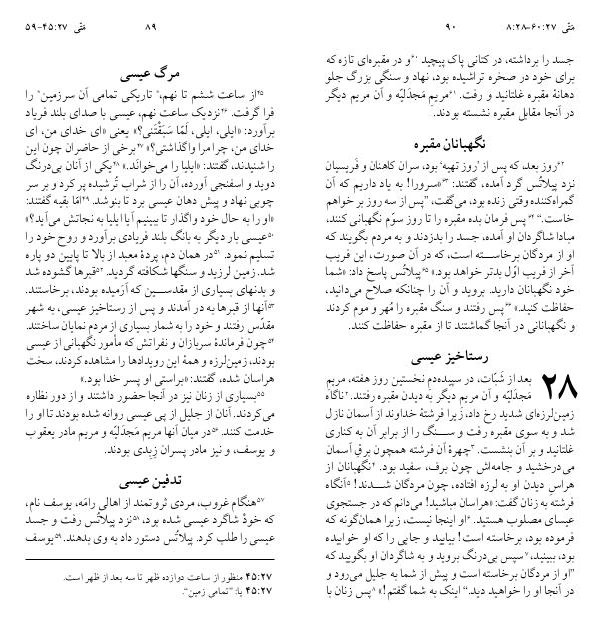 مَتّی ۲۷:‏۴۵-۵۹
۸۹
مرگ عیسی
۴۵از ساعت ششم تا نهم،* تاریکی تمامی آن سرزمین* را
فرا گرفت. ۴۶نزدیک ساعت نهم، عیسی با صدای بلند فریاد
برآورد: «ایلی، ایلی، لَمّا سَبَقْتَنی؟» یعنی «ای خدای من، ای
خدای من، چرا مرا واگذاشتی؟» ۴۷برخی از حاضران چون این
را شنیدند، گفتند: «ایلیا را می‌خواند.» ۴۸یکی از آنان بی‌درنگ
دوید و اسفنجی آورده، آن را از شراب تُرشیده پر کرد و بر سر
چوبی نهاد و پیش دهان عیسی برد تا بنوشد. ۴۹امّا بقیه گفتند:
«او را به حال خود واگذار تا ببینیم آیا ایلیا به نجاتش می‌آید؟»
۵۰عیسی بار دیگر به بانگ بلند فریادی برآورد و روح خود را
تسلیم نمود. ۵۱در همان دم، پردهٔ معبد از بالا تا پایین دو پاره
شد. زمین لرزید و سنگها شکافته گردید. ۵۲قبرها گشوده شد
و بدنهای بسیاری از مقدّسین که آرَمیده بودند، برخاستند.
۵۳آنها از قبرها به در آمدند و پس از رستاخیز عیسی، به شهر
مقدّس رفتند و خود را به شمار بسیاری از مردم نمایان ساختند.
۵۴چون فرماندهٔ سربازان و نفراتش که مأمور نگهبانی از عیسی
بودند، زمین‌لرزه و همهٔ این رویدادها را مشاهده کردند، سخت
هراسان شده، گفتند: «براستی او پسر خدا بود.»
۵۵بسیاری از زنان نیز در آنجا حضور داشتند و از دور نظاره
می‌کردند. آنان از جلیل از پی عیسی روانه شده بودند تا او را
خدمت کنند. ۵۶در میان آنها مریم مَجدَلیّه و مریم مادر یعقوب
و یوسف، و نیز مادر پسران زِبِدی بودند.
تدفین عیسی
۵۷هنگام غروب، مردی ثروتمند از اهالی رامَه، یوسف نام،
که خودْ شاگرد عیسی شده بود، ۵۸نزد پیلاتُس رفت و جسد
عیسی را طلب کرد. پیلاتُس دستور داد به وی بدهند. ۵۹یوسف
۴۵:۲۷ منظور از ساعت دوازده ظهر تا سه بعد از ظهر است.
۴۵:۲۷ یا: "تمامی زمین".
۹۰
مَتّی ۲۷:‏۶۰-۲۸:‏۸
جسد را برداشته، در کتانی پاک پیچید ۶۰و در مقبره‌ای تازه که
برای خود در صخره تراشیده بود، نهاد و سنگی بزرگ جلو
دهانهٔ مقبره غلتانید و رفت. ۶۱مریم مَجدَلیّه و آن مریم دیگر
در آنجا مقابل مقبره نشسته بودند.
نگهبانان مقبره
۶۲روز بعد، که پس از 'روز تهیه' بود، سران کاهنان و فَریسیان
نزد پیلاتُس گرد آمده، گفتند: ۶۳«سرورا! به یاد داریم که آن
گمراه‌کننده وقتی زنده بود، می‌گفت، "پس از سه روز بر خواهم
خاست." ۶۴پس فرمان بده مقبره را تا روز سوّم نگهبانی کنند،
مبادا شاگردان او آمده، جسد را بدزدند و به مردم بگویند که
او از مردگان برخاسته است، که در آن صورت، این فریب
آخر از فریب اوّل بدتر خواهد بود.» ۶۵پیلاتُس پاسخ داد: «شما
خود نگهبانان دارید. بروید و آن را چنانکه صلاح می‌دانید،
حفاظت کنید.» ۶۶پس رفتند و سنگ مقبره را مُهر و موم کردند
و نگهبانانی در آنجا گماشتند تا از مقبره حفاظت کنند.
رستاخیز عیسی
۲۸ بعد از شَبّات، در سپیده‌دم نخستین روز هفته، مریم
مَجدَلیّه و آن مریم دیگر به دیدن مقبره رفتند. ۲ناگاه
زمین‌لرزه‌ای شدید رخ داد، زیرا فرشتهٔ خداوند از آسمان نازل
شد و به سوی مقبره رفت و سنگ را از برابر آن به کناری
غلتانید و بر آن بنشست. ۳چهرهٔ آن فرشته همچون برقِ آسمان
می‌درخشید و جامه‌اش چون برف، سفید بود. ۴نگهبانان از
هراسِ دیدن او به لرزه افتاده، چون مردگان شدند! ۵آنگاه
فرشته به زنان گفت: «هراسان مباشید! می‌دانم که در جستجوی
عیسای مصلوب هستید. ۶او اینجا نیست، زیرا همان‌گونه که
فرموده بود، برخاسته است! بیایید و جایی را که او خوابیده
بود، ببینید، ۷سپس بی‌درنگ بروید و به شاگردان او بگویید که
"او از مردگان برخاسته است و پیش از شما به جلیل می‌رود و
در آنجا او را خواهید دید." اینک به شما گفتم!» ۸پس زنان با